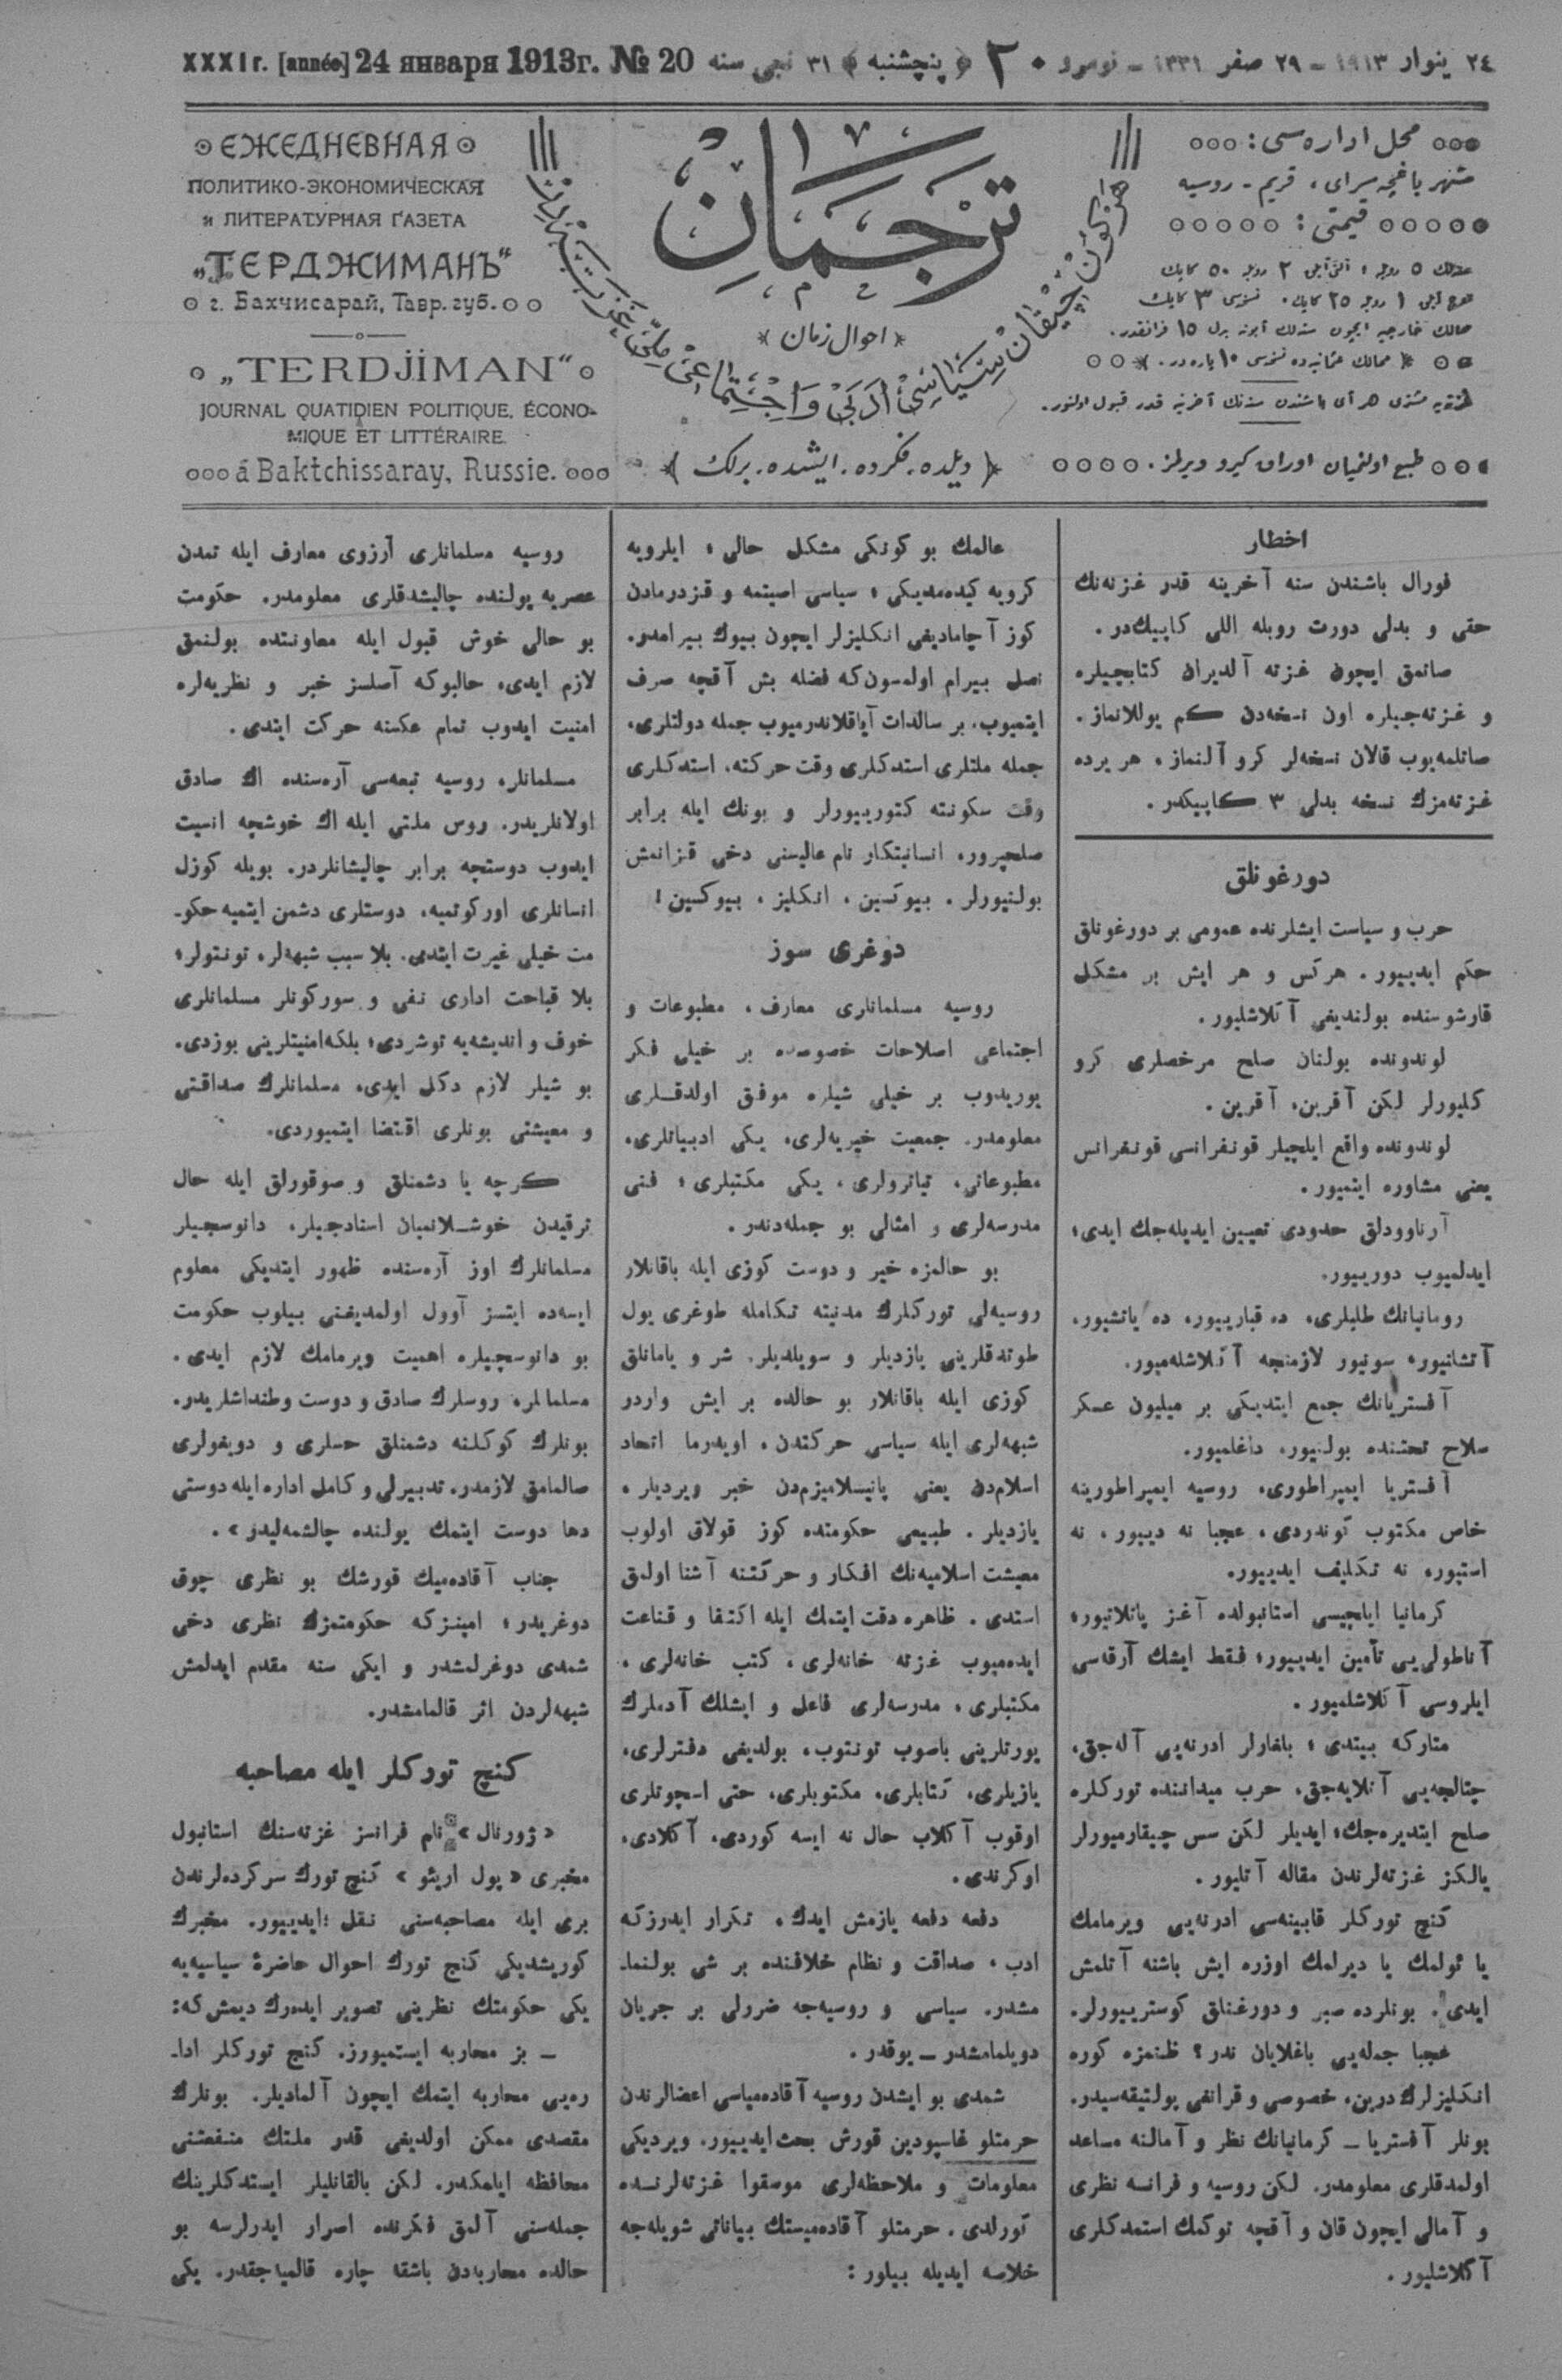 XXXI г. [année] 24 января 1913г. № 20 ٣١ نجی سنه ﴿ پنچشنبه ﴾ ٢٠ نومرو - ٢٩ صفر ١٣٣١ - ٢٤ ینوار ١٩١٣
ЕЖЕДНЕВНАЯ
ПОЛИТИКО-ЭКОНОМИЧЕСКАЯ
и ЛИТЕРАТУРНАЯ ГАЗЕТА
„ТЕРДЖИМАНЪ“
г. Бахчисарай, Тавр. губ.
„TERDJIMAN“
JOURNAL QUATIDIEN POLITIQUE, ÉCONO-
MIQUE ET LITTÉRAIRE.
á Baktchissaray, Russie.
ترجمان
﴿ احوال زمان ﴾
هر كون چیقان سیاسی ادبی و اجتماعی ملی غزته در
﴿ دیلده، فكرده، ایشده، برلك ﴾
محل اداره سی:
شهر باغچه سرای، قریم - روسیه
قیمتی:
سنه‌لك ٥ روبله، آلتی آیلق ٢ روبله ٥٠ كاپك
اوچ آیلق ١ روبله ٢٥ كاپك، نسخه‌سی ٣ كاپك
ممالك خارجیه ایچون سنه‌لك آبونه بدلی ١٥ فرانقدر.
﴿ ممالك عثمانیه‌ده نسخه‌سی ١٠ پاره‌در. ﴾
غزته‌یه مشتری هر آی باشندن سنه‌نك آخرینه قدر قبول اولنور.
طبع اولنمیان اوراق كیرو ویرلمز.
اخطار
فورال باشندن سنه آخرینه قدر غزته‌نك
حقی و بدلی دورت روبله اللی كاپیك‌در.
صاتمق ایچون غزته آلدیران كتابچیلره
و غزته‌جیلره اون نسخه‌دن كم یوللانماز.
صاتلمه‌یوب قالان نسخه‌لر كرو آلنماز، هر یرده
غزته‌مزك نسخه بدلی ٣ كاپیكدر.
دورغونلق
حرب و سیاست ایشلرنده عمومی بر دورغونلق
حكم ایدییور. هركس و هر ایش بر مشكل
قارشوسنده بولندیغی آكلاشلیور.
لوندونده بولنان صلح مرخصلری كرو
كلیورلر لكن آقرین، آقرین.
لوندونده واقع ایلچیلر قونفرانسی قونفرانس
یعنی مشاوره ایتمیور.
آرناوودلق حدودی تعیین ایدیله‌جك ایدی؛
ایدلمیوب دورییور.
رومانیانك طلبلری، ده قبارییور، ده یاتشیور،
آتشانیور، سونیور لازمنجه آكلاشله‌میور.
آفستریانك جمع ایتدیكی بر میلیون عسكر
سلاح تحتنده بولنیور، داغلمیور.
آفستریا ایمپراطوری، روسیه ایمپراطورینه
خاص مكتوب كوندردی، عجبا نه دییور، نه
استیور، نه تكلیف ایدییور.
كرمانیا ایلچیسی استانبولده آغز پاتلاتیور؛
آناطولی‌یی تأمین ایدییور؛ فقط ایشك آرقه‌سی
ایلروسی آكلاشلمیور.
متاركه بیتدی؛ بلغارلر ادرنه‌یی آله‌جق،
چتالجه‌یی آتلایه‌جق، حرب میداننده توركلره
صلح ایتدیره‌جك؛ ایدیلر لكن سس چیقارمیورلر
یالكز غزته‌لرندن مقاله آتلیور.
كنج توركلر قابینه‌سی ادرنه‌یی ویرمامك
یا ئولمك یا دیرلمك اوزره ایش باشنه آتلمش
ایدی. بونلرده صبر و دورغنلق كوسترییورلر.
عجبا جمله‌یی باغلایان ندر؟ ظنمزه كوره
انكلیزلرك درین، خصوصی و قرانغی پولتیقه‌سیدر.
بونلر آفستریا - كرمانیانك نظر و آمالنه مساعد
اولمدقلری معلومدر. لكن روسیه و فرانسه نظری
و آمالی ایچون قان و آقچه توكمك استمدكلری
آكلاشلیور.
عالمك بو كونكی مشكل حالی، ایلرویه
كرویه كیده‌مدیكی؛ سیاسی اصیتمه و قزدرمادن
كوز آچامادیغی انكلیزلر ایچون بیوك بیرامدر.
نصل بیرام اولمسون كه فضله بش آقچه صرف
ایتمیوب، بر سالدات آیاقلاندرمیوب جمله دولتلری،
جمله ملتلری استدكلری وقت حركته، استدكلری
وقت سكونته كتورییورلر و بونك ایله برابر
صلحپرور، انسانیتكار نام عالیسنی دخی قزانمش
بولنیورلر. بیوكسین، انكلیز، بیوكسین!
دوغری سوز
روسیه مسلمانلری معارف، مطبوعات و
اجتماعی اصلاحات خصوصده بر خیلی فكر
یوریدوب بر خیلی شیلره موفق اولدقلری
معلومدر. جمعیت خیریه‌لری، یكی ادبیاتلری،
مطبوعاتی، تیاترولری، یكی مكتبلری؛ فنی
مدرسه‌لری و امثالی بو جمله‌دندر.
بو حالمزه خیر و دوست كوزی ایله باقانلار
روسیه‌لی توركلرك مدنیته تكامله طوغری یول
طوتدقلرینی یازدیلر و سویلدیلر. شر و یامانلق
كوزی ایله باقانلار بو حالده بر ایش واردر
شبهه‌لری ایله سیاسی حركتدن، اویدرما اتحاد
اسلام‌دن یعنی پانیسلامیزم‌دن خبر ویردیلر،
یازدیلر. طبیعی حكومتده كوز قولاق اولوب
معیشت اسلامیه‌نك افكار و حركتنه آشنا اولمق
استدی. ظاهره دقت ایتمك ایله اكتفا و قناعت
ایده‌میوب غزته خانه‌لری، كتب خانه‌لری،
مكتبلری، مدرسه‌لری فاعل و ایشلك آدملرك
یورتلرینی باصوب تونتوب، بولدیغی دفترلری،
یازیلری، كتابلری، مكتوبلری، حتی اسچوتلری
اوقوب آكلاب حال نه ایسه كوردی، آكلادی،
اوكرندی.
دفعه دفعه یازمش ایدك، تكرار ایدرزكه
ادب، صداقت و نظام خلافنده بر شی بولنما-
مشدر. سیاسی و روسیه‌جه ضررلی بر جریان
دویلمامشدر - یوقدر.
شمدی بو ایشدن روسیه آقاده‌میاسی اعضالرندن
حرمتلو غاسپودین قورش بحث ایدییور. ویردیكی
معلومات و ملاحظه‌لری موسقوا غزته‌لرنده
كورلدی. حرمتلو آقاده‌میستك بیاناتی شویله‌جه
خلاصه ایدیله بیلور:
روسیه مسلمانلری آرزوی معارف ایله تمدن
عصریه یولنده چالیشدقلری معلومدر. حكومت
بو حالی خوش قبول ایله معاونتده بولنمق
لازم ایدی، حالبوكه آصلسز خبر و نظریه‌لره
امنیت ایدوب تمام عكسنه حركت ایتدی.
مسلمانلر، روسیه تبعه‌سی آره‌سنده اك صادق
اولانلریدر. روس ملتی ایله اك خوشچه انسیت
ایدوب دوستچه برابر چالیشانلردر. بویله كوزل
انسانلری اوركوتمیه، دوستلری دشمن ایتمیه حكو-
مت خیلی غیرت ایتدی. بلا سبب شبهه‌لر، تونتولر؛
بلا قباحت اداری نفی و سوركونلر مسلمانلری
خوف و اندیشه‌یه توشردی؛ بلكه امنیتلرینی بوزدی.
بو شیلر لازم دكل ایدی، مسلمانلرك صداقتی
و معیشتی بونلری اقتضا ایتمیوردی.
كرچه یا دشمنلق و صوقورلق ایله حال
ترقیدن خوشلانمیان اسنادجیلر، دانوسچیلر
مسلمانلرك اوز آره‌سنده ظهور ایتدیكی معلوم
ایسه‌ده ایتسز آوول اولمدیغنی بیلوب حكومت
بو دانوسچیلره اهمیت ویرمامك لازم ایدی.
مسلمانلر، روسلرك صادق و دوست وطنداشلریدر.
بونلرك كوكلنه دشمنلق حسلری و دویغولری
صالمامق لازمدر. تدبیرلی و كامل اداره ایله دوستی
دها دوست ایتمك یولنده چالشمه‌لیدر».
جناب آقاده‌میك قورشك بو نظری چوق
دوغریدر؛ امینزكه حكومتمزك نظری دخی
شمدی دوغرلمشدر و ایكی سنه مقدم ایدلمش
شبهه‌لردن اثر قالمامشدر.
كنج توركلر ایله مصاحبه
«ژورنال» نام فرانسز غزته‌سنك استانبول
مخبری «پول اریئو» كنج تورك سركرده‌لرندن
بری ایله مصاحبه‌سنی نقل ایدییور. مخبرك
كوریشدیكی كنج تورك احوال حاضرهٔ سیاسیه‌یه
یكی حكومتك نظرینی تصویر ایده‌رك دیمش كه:
- بز محاربه ایستمیورز. كنج توركلر ادا-
ره‌یی محاربه ایتمك ایچون آلمادیلر. بونلرك
مقصدی ممكن اولدیغی قدر ملتك منفعتنی
محافظه ایلمكدر. لكن بالقانلیلر ایستدكلرینك
جمله‌سنی آلمق فكرنده اصرار ایدرلرسه بو
حالده محاربه‌دن باشقه چاره قالمیه‌جقدر. یكی